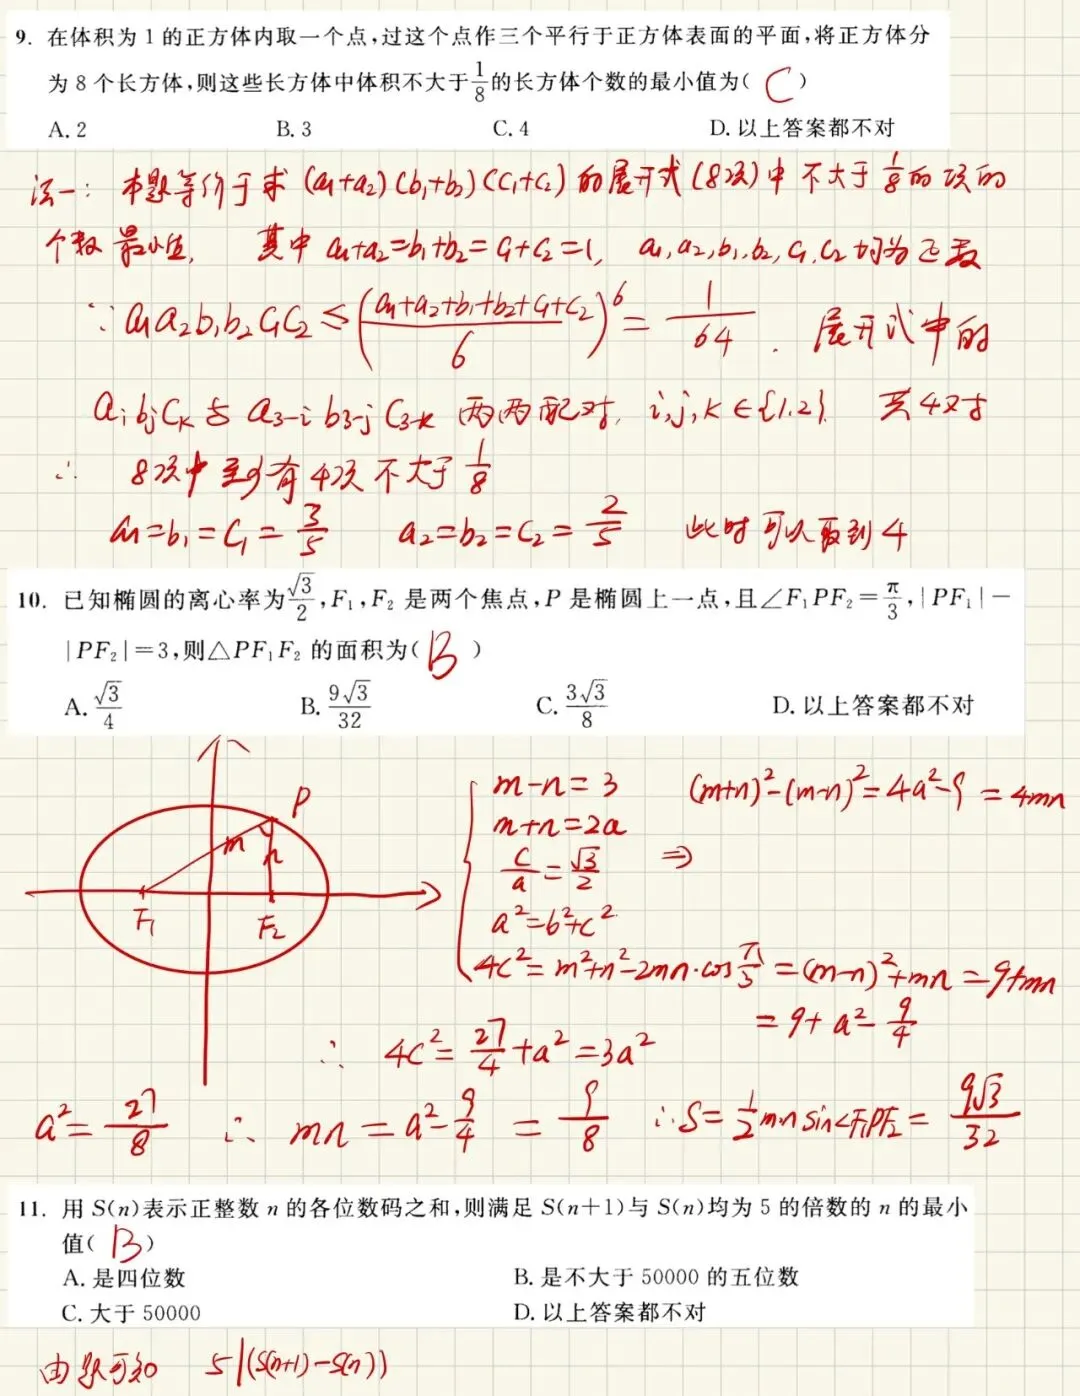 9. 在体积为 1 的正方体内取一个点,过这个点作三个平行于正方体表面的平面,将正方体分
为 8 个长方体,则这些长方体中体积不大于 1/8 的长方体个数的最小值为( C )
A. 2 B. 3 C. 4 D. 以上答案都不对
法一: 本题等价于求 (a₁+a₂)(b₁+b₂)(c₁+c₂) 的展开式(8项)中不大于 1/8 的项的
个数最小值. 其中 a₁+a₂=b₁+b₂=c₁+c₂=1, a₁,a₂,b₁,b₂,c₁,c₂均为正数
∵ a₁a₂b₁b₂c₁c₂ ≤ ((a₁+a₂+b₁+b₂+c₁+c₂)/6)⁶ = 1/64 . 展开式中的
aᵢbⱼcₖ 与 a₃₋ᵢ b₃₋ⱼ c₃₋ₖ 两两配对, i,j,k∈{1,2}. 共4对
∴ 8项中至少有4项不大于 1/8
a₁=b₁=c₁=3/5 a₂=b₂=c₂=2/5 此时可以取到4
10. 已知椭圆的离心率为 √3/2, F₁, F₂ 是两个焦点, P 是椭圆上一点,且∠F₁PF₂=π/3, |PF₁|−
|PF₂|=3,则△PF₁F₂ 的面积为( B )
A. √3/4 B. 9√3/32 C. 3√3/8 D. 以上答案都不对
P
m n
F₁ F₂
m−n=3 (m+n)²−(m−n)²=4a²−9=4mn
m+n=2a
c/a=√3/2 ⇒
a²=b²+c²
4c²=m²+n²−2mn·cos π/3 =(m−n)²+mn=9+mn
=9+a²−9/4
∴ 4c²=27/4+a²=3a²
a²=27/8 ∴ mn=a²−9/4=9/8 ∴S=1/2 mn sin∠F₁PF₂=9√3/32
11. 用 S(n)表示正整数 n 的各位数码之和,则满足 S(n+1)与 S(n)均为 5 的倍数的 n 的最小
值( B )
A. 是四位数 B. 是不大于 50000 的五位数
C. 大于 50000 D. 以上答案都不对
由题可知 5|(S(n+1)−S(n))